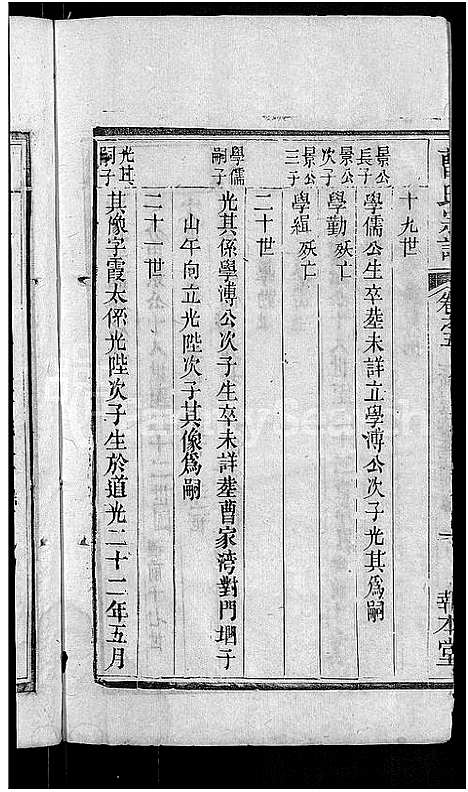 曹氏宗譜
卷之五
報本堂
十九世
景公長子
學儒公生卒塟未詳立學溥公次子光其為嗣
景公次子
學勤殀亡
景公三子
學緝殀亡
二十世
學儒嗣子
光其係學溥公次子生卒未詳塟曹家湾對門堌子
山午向立光陛次子其像為嗣
二十一世
光其嗣子
其像字霞太係光陛次子生於道光二十二年五月